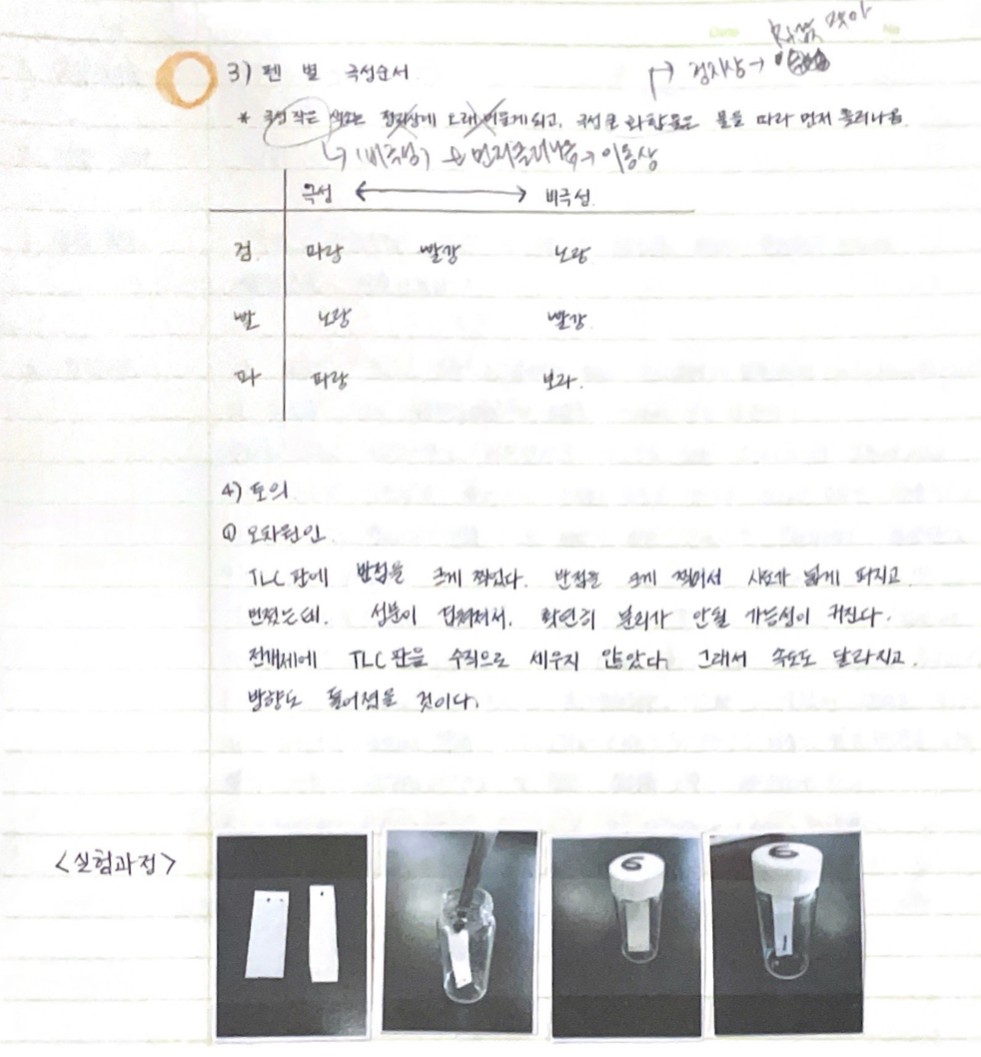 3) 펜 별 극성순서
정지상 →
* 극성 작은 색소는 오래 되고, 극성 큰 화합물은 물을 따라 먼저 올라나옴
↳ (비극성) 은 → 이동상
극성 ↔ 비극성
검 파랑 빨강 노랑
빨 노랑 빨강
파 파랑 보라.
4) 토의
① 오차원인.
TLC 판에 반점을 크게 찍었다. 반점을 크게 찍어서 시료가 넓게 퍼지고
번졌는데. 성분이 겹쳐져서. 확연히 분리가 안될 가능성이 커진다.
전개제에 TLC 판을 수직으로 세우지 않았다. 그래서 속도도 달라지고.
방향도 틀어졌을 것이다.
<실험과정>
6
6